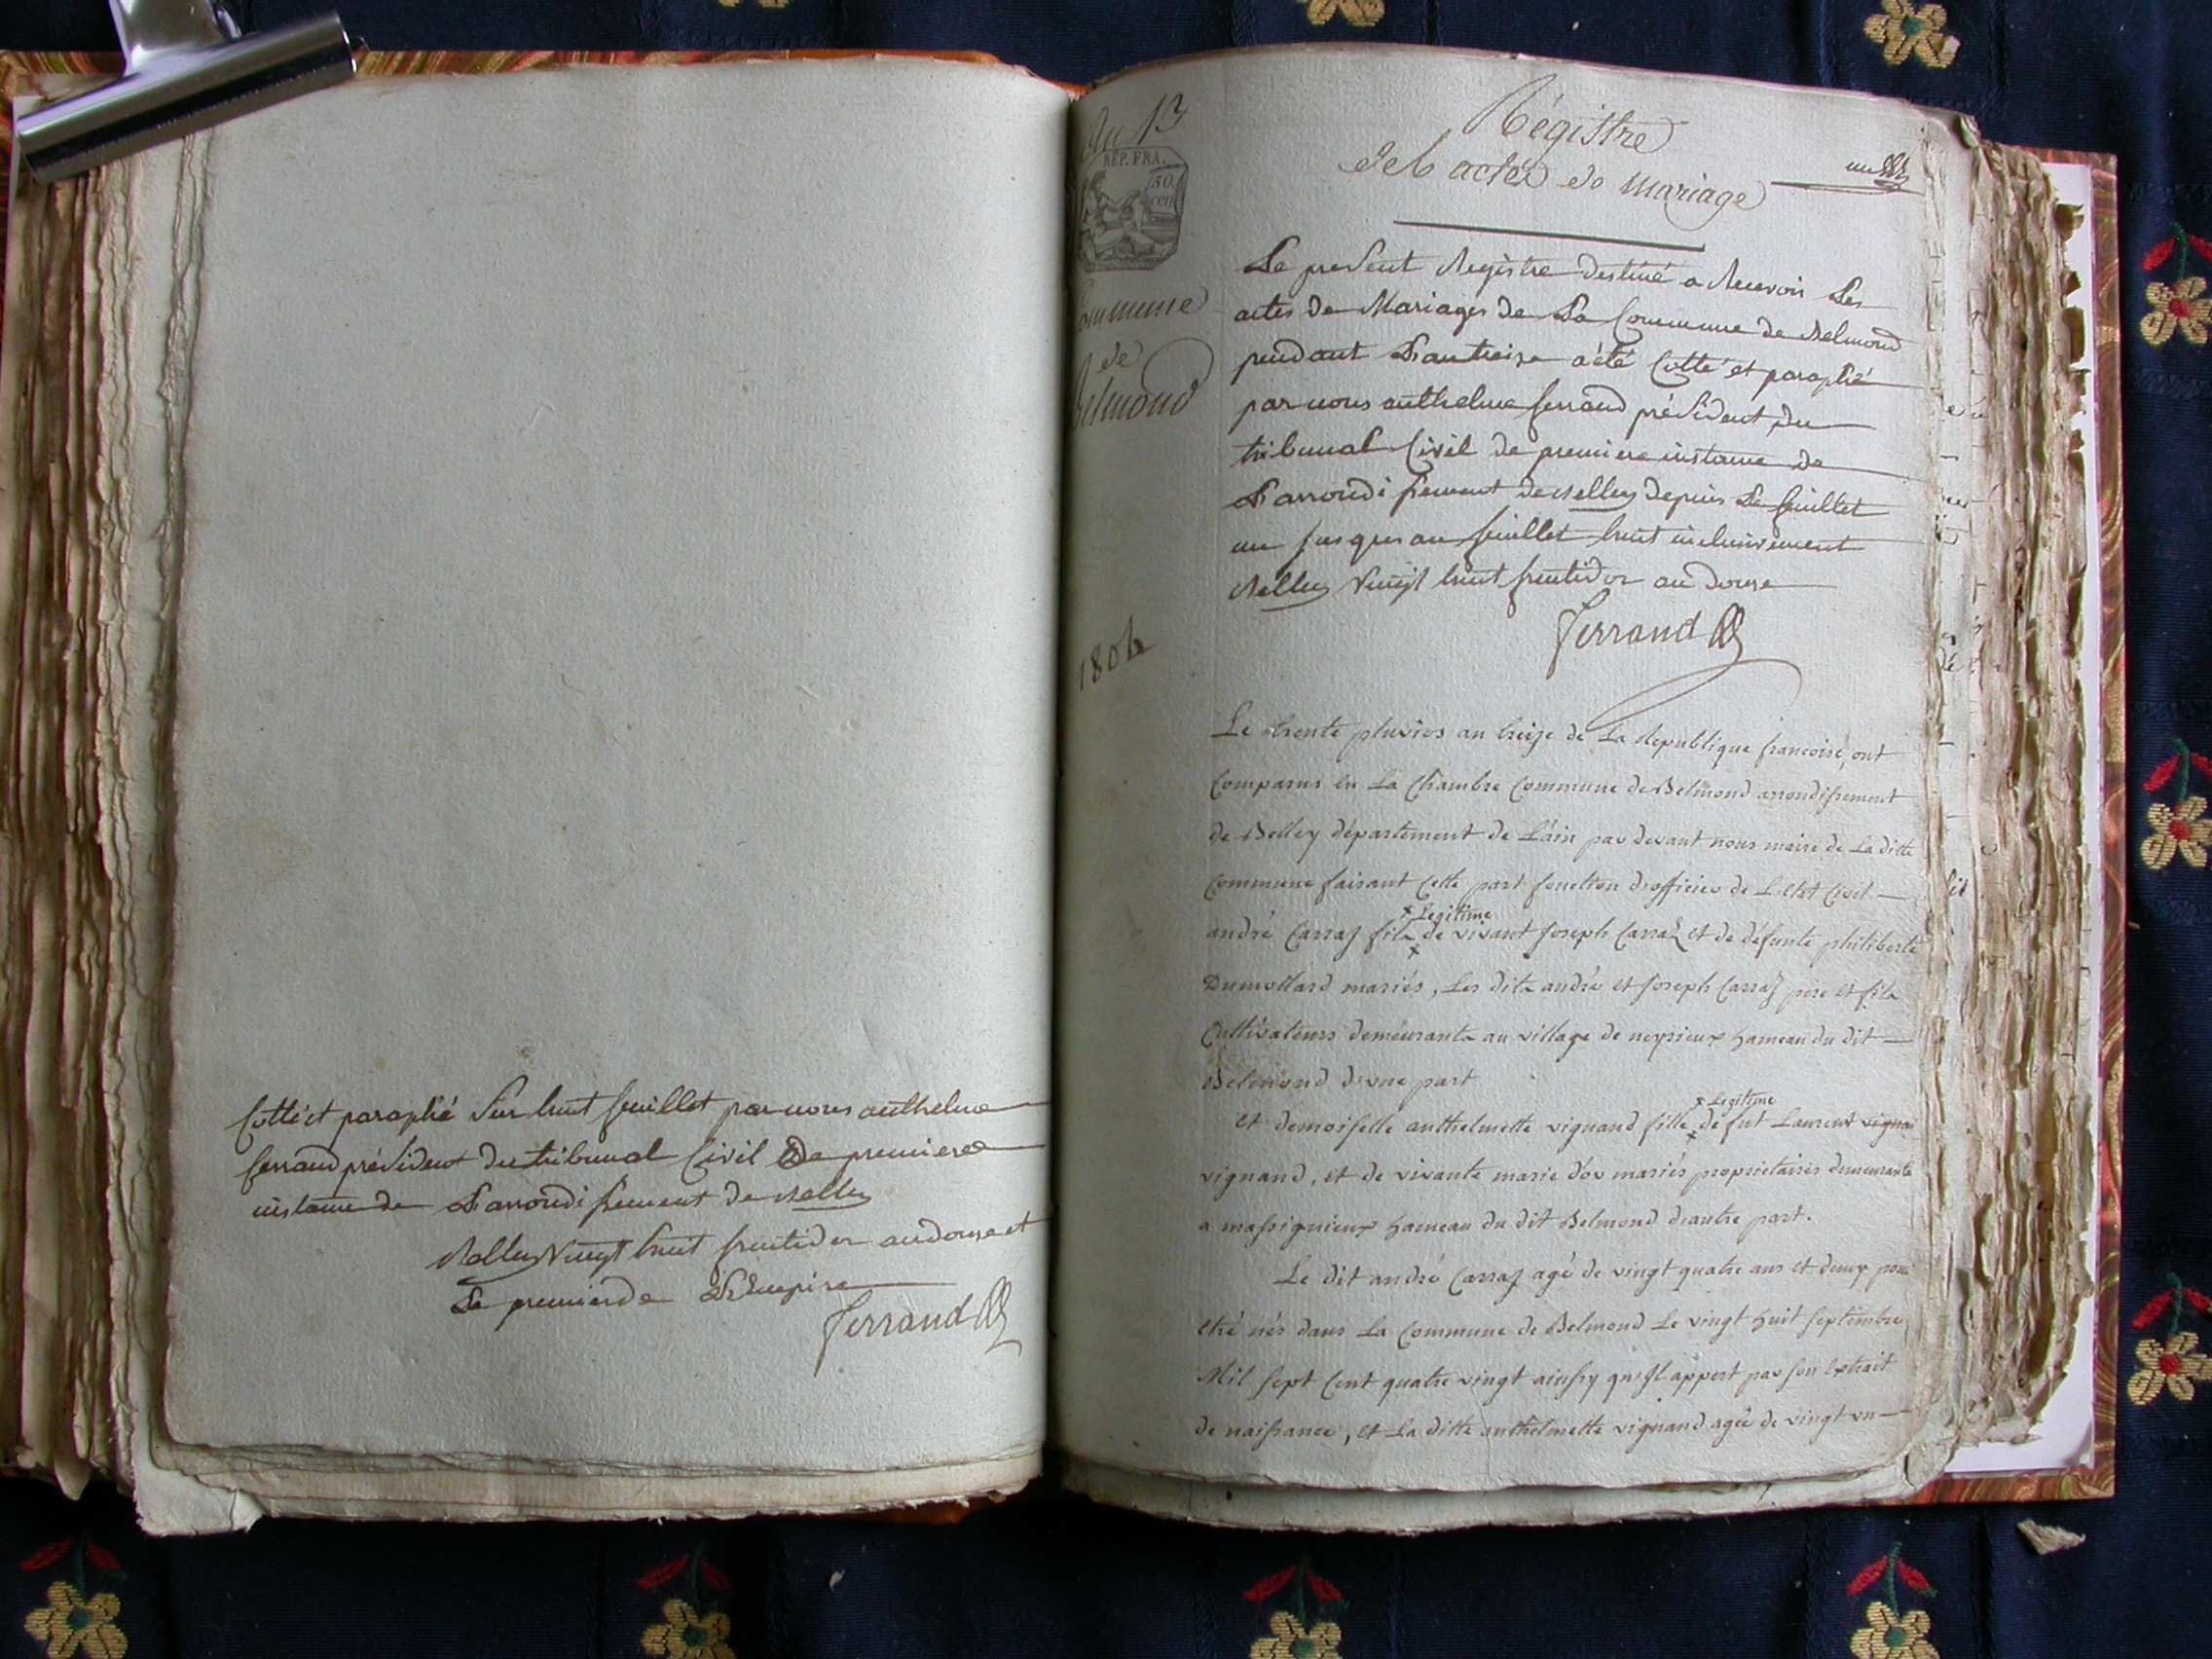 Cotté et paraphé Sur huit feuillet par nous anthelme
ferrand président du tribunal Civil De premiere
instance de L'arrondissement de Belley
Belley Vingt huit fructidor an douze et
Le premier de L'Empire
ferrand
An 13
REP. FRA.
50
cen
Commune
de
Belmond
1804
Régistre
des actes de mariage
un
Le present Registre destiné a Recevoir Les
actes de Mariages de La Commune de Belmond
pendant L'an treize a été Cotté et paraphé
par nous anthelme ferrand président du
tribunal Civil de premiere instance de
L'arrondissement de Belley depuis Le feuillet
un jusques au feuillet huit inclusivement
Belley Vingt huit fructidor an douze
ferrand
Le trente pluvios an treize de La Republique francoise, ont
Comparus en La Chambre Commune de Belmond arrondissement
de Belley département de L'ain par devant nous maire de La ditte
Commune faisant Cette part fonction d'officier de L'etat Civil
x Legitime
andré Carraz fils x de vivant Joseph Carraz et de défunte philiberte
Dumollard mariés, Les dits andré et Joseph Carraz pere et fils
Cultivateurs demeurants au village de neyrieux hameau du dit
Belmond d'une part
x Legitime
et demoiselle anthelmette vignand fille x de fut Laurent vignan
vignand, et de vivante marie d'or mariés proprietaires demeurants
a massignieux hameau du dit Belmond d'autre part.
Le dit andré Carraz agé de vingt quatre ans et demy pour
etre nés dans La Commune de Belmond Le vingt huit septembre
Mil sept Cent quatre vingt ainsy qu'il appert par son Extrait
de naissance, et La ditte anthelmette vignand agée de vingt un